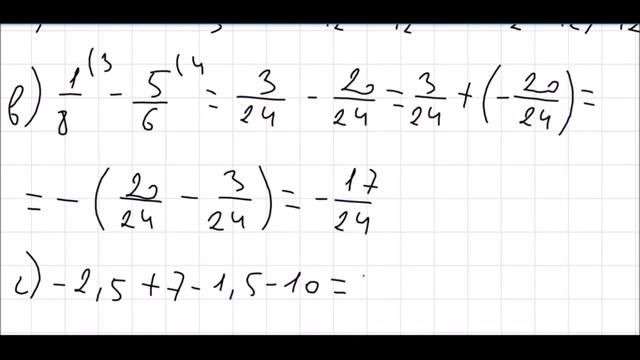 в) 1/8 (3 - 5/6 (4 = 3/24 - 20/24 = 3/24 + (- 20/24) =
= - (20/24 - 3/24) = - 17/24
с) - 2,5 + 7 - 1,5 - 10 =